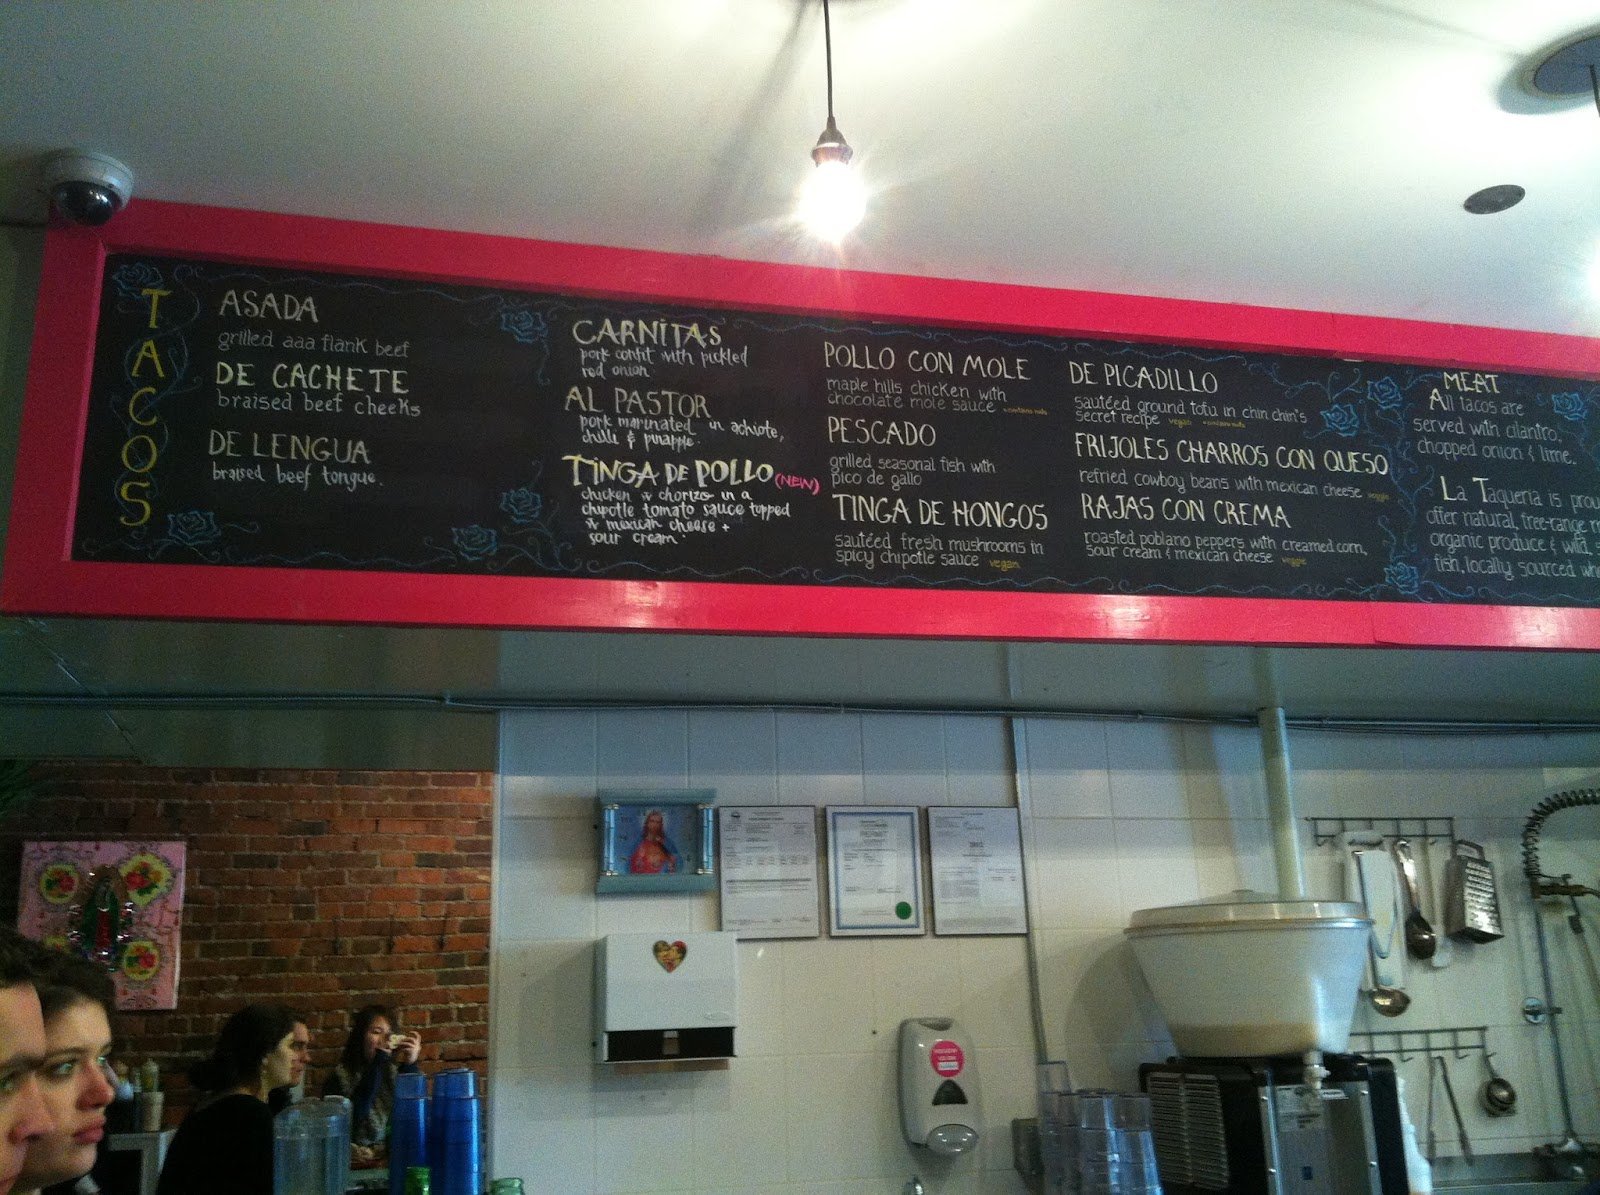 TACOS
ASADA
grilled aaa flank beef
DE CACHETE
braised beef cheeks
DE LENGUA
braised beef tongue.
CARNITAS
pork confit with pickled
red onion
AL PASTOR
pork marinated in achiote,
chilli & pinapple.
TINGA DE POLLO (NEW)
chicken & chorizo in a
chipotle tomato sauce topped
w mexican cheese +
sour cream.
POLLO CON MOLE
maple hills chicken with
chocolate mole sauce • contains nuts
PESCADO
grilled seasonal fish with
pico de gallo
TINGA DE HONGOS
sautéed fresh mushrooms in
spicy chipotle sauce vegan
DE PICADILLO
sautéed ground tofu in chin chin's
secret recipe vegan • contains nuts
FRIJOLES CHARROS CON QUESO
refried cowboy beans with mexican cheese veggie
RAJAS CON CREMA
roasted poblano peppers with creamed corn,
sour cream & mexican cheese veggie
MEAT
All tacos are
served with cilantro,
chopped onion & lime.
La Taqueria is prou
offer natural, free-range
organic produce & wild,
fish, locally sourced whe